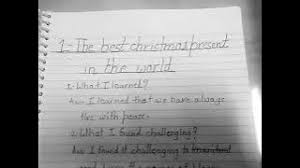 1-The best christmas present
in the world
1-What I learned?
Ans I learned that we have always
live with peace.
2. What I found challenging?
Ans I found it challenging to